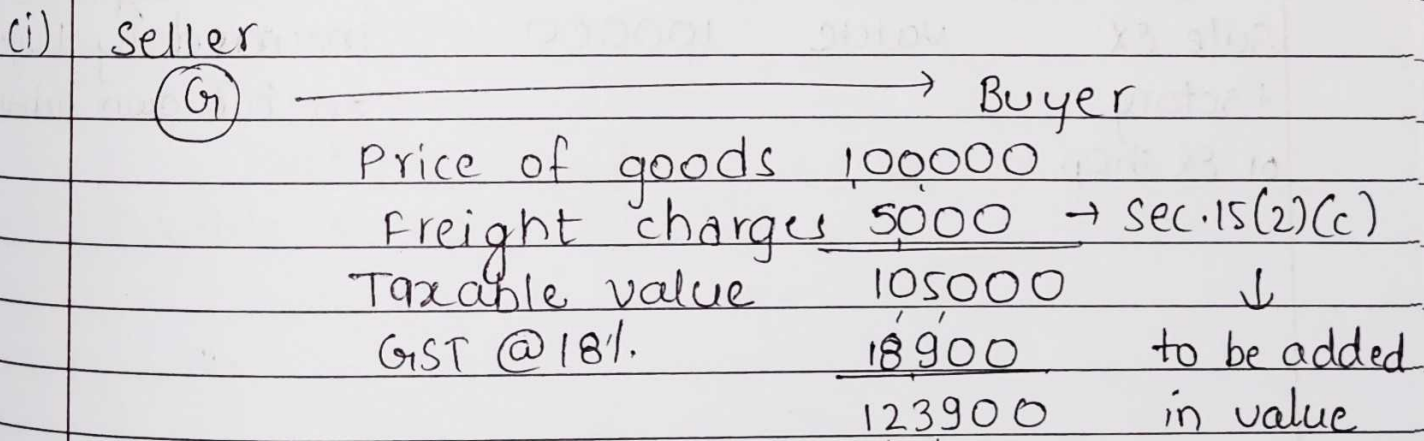 (i) Seller
G → Buyer
Price of goods 100000
Freight charges 5000 → Sec.15(2)(c)
Taxable value 105000 ↓
GST @ 18%. 18900 to be added
123900 in value